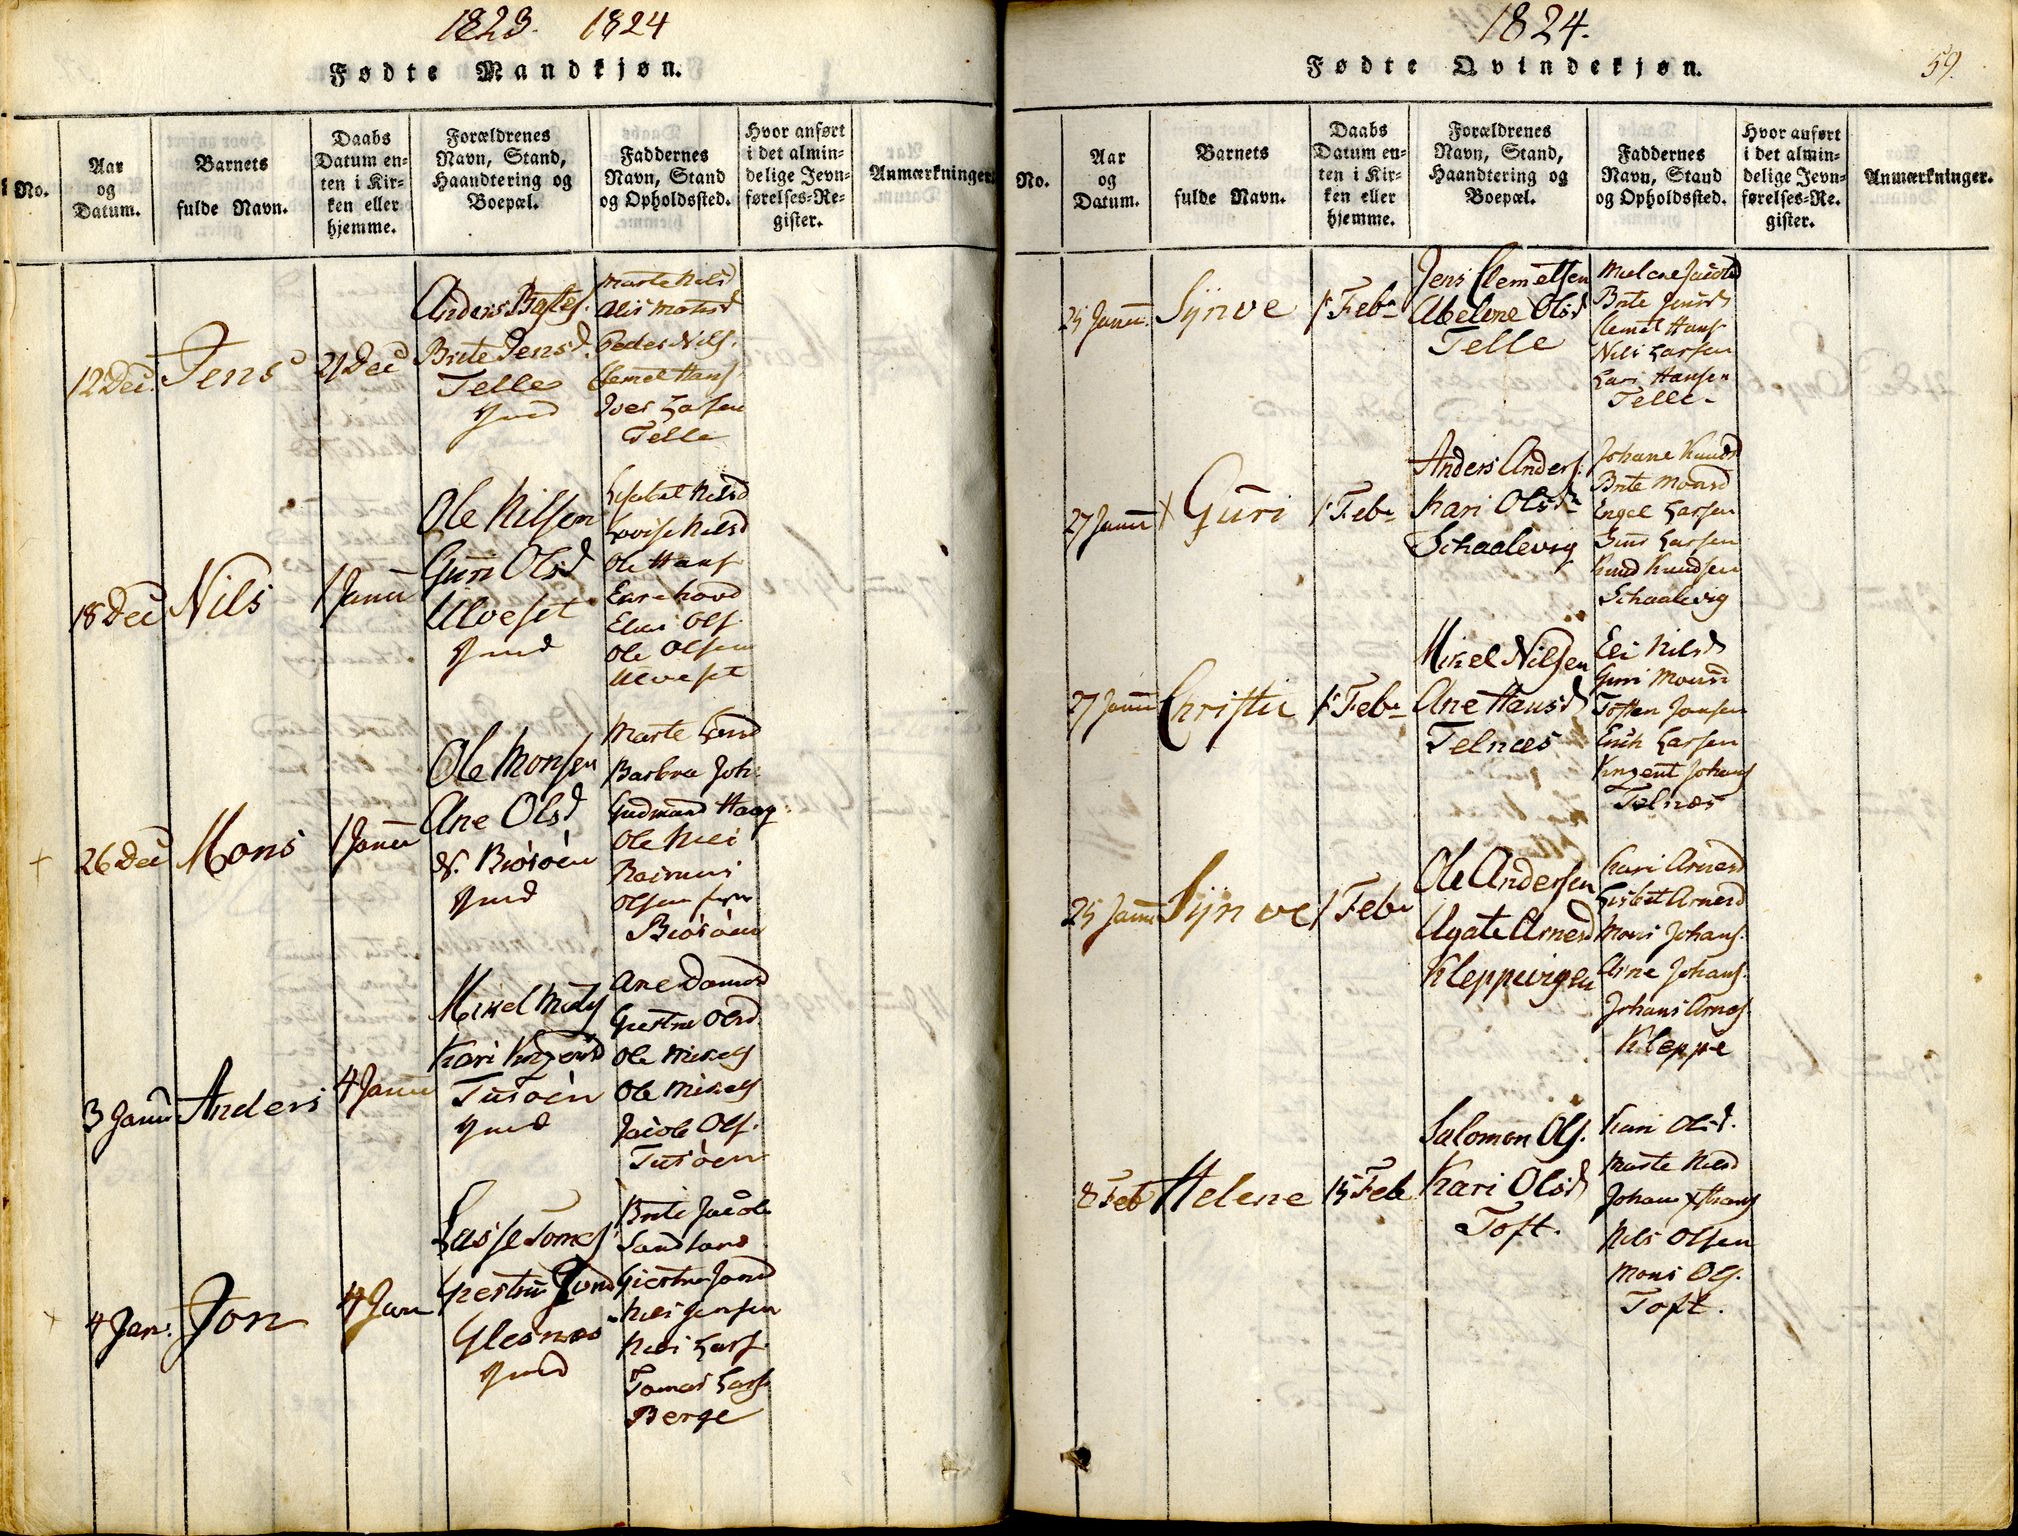 1823. 1824
Fødte Mandkjøn.
No.
Aar
og
Datum.
Barnets
fulde Navn.
Daabs
Datum en-
ten i Kir-
ken eller
hjemme.
Forældrenes
Navn, Stand,
Haandtering og
Boepæl.
Faddernes
Navn, Stand
og Opholdssted.
Hvor anført
i det almin-
delige Jevn-
førelses-Re-
gister.
Anmærkninger.
12 Dec.
Jens
21 Dec
Anders
Brite Jensd.
Telle
Marte Nilsd
Peder Nils.
Clemet Hans
Iver Larsen
Telle
18 Dec
Nils
1 Janu
Ole Nilsen
Guri Olsd
Ulveset
Lisabet Nilsd
Lovise Nilsd
Ole Hans
Ole Olsen
Ulveset
26 Dec
Mons
1 Janu
Ole Monsen
Ane Olsd
N. Biøröen
Marte
Barbra Joh.
Gudmund Haag.
Ole Nils
Rasmus
Olsen
Biøröen
3 Janu
Anders
4 Janu
Mikel
Kari
Tusöen
Ane
Giertru Olsd
Ole Mikels
Ole Mikels
Jacob Ols.
Tusöen
4 Jan.
Jon
4 Jan
Lasse Tomes
Giertru Jonsd
Glesnæs
Brite Jacobs
Sandland
Giertru Jonsd
Nils Jensen
Nils Lars.
Tomas Lars.
Berge
1824.
59.
Fødte Qvindekjøn.
No.
Aar
og
Datum.
Barnets
fulde Navn.
Daabs
Datum en-
ten i Kir-
ken eller
hjemme.
Forældrenes
Navn, Stand,
Haandtering og
Boepæl.
Faddernes
Navn, Stand
og Opholdssted.
Hvor anført
i det almin-
delige Jevn-
førelses-Re-
gister.
Anmærkninger.
25 Janu.
Synve
1 Feb
Jens Clemetsen
Abelone Olsd
Telle
Brite Jensd
Clemet Hans
Nils Larsen
Lars Hansen
Telle
27 Janu
Guri
1 Feb
Anders Anders.
Kari Olsd
Schaalevig
Johane Knudsd
Brite Monsd
Engel Larsen
Jens Larsen
Knud Knudsen
Schaalevig
27 Janu
Christie
1 Feb
Mikel Nilsen
Ane Hansd
Telnæs
Eli Nilsd
Guri Monsd
Tosten Jonsen
Erich Larsen
Vinzent Johans
Telnæs
25 Janu
Synve
1 Feb
Ole Andersen
Agate Arnesd
Kleppevigen
Kari Arnesd
Lisbet Arnesd
Mons Johans.
Arne Johans.
Johans Arnes.
Kleppe
8 Feb
Helene
15 Feb
Salomon Ols.
Kari Olsd
Toft.
Kari Olsd.
Marte Nilsd
Johans Hans
Nils Olsen
Mons Ols.
Toft.